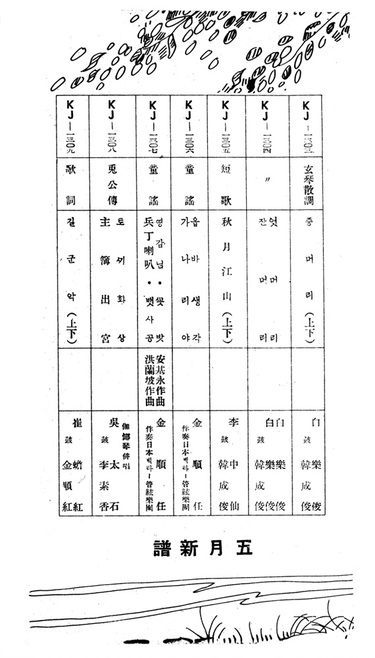 KJ―一三〇三 玄琴散調 중머리(上下) 白樂俊 鼓 韓成俊
KJ―一三〇四 〃 엇머리 잔머리 白樂俊 鼓 韓成俊
KJ―一三〇五 短歌 秋月江山(上下) 李中仙 鼓 韓成俊
KJ―一三〇六 童謠 옵바생각 가나리야 金順任 伴奏日本빅타ー管絃樂團
KJ―一三〇七 童謠 영감님・꽃밧 兵丁喇叭・뱃사공 安基永作曲 洪蘭坡作曲 金順任 伴奏日本빅타ー管絃樂團
KJ―一三〇八 兎公傳 토끼화상 主簿出宮 伽倻琴倂唱 吳太石 鼓 李素香
KJ―一三〇九 歌詞 길군악(上下) 崔蟾紅 鼓 金順紅
五月新譜